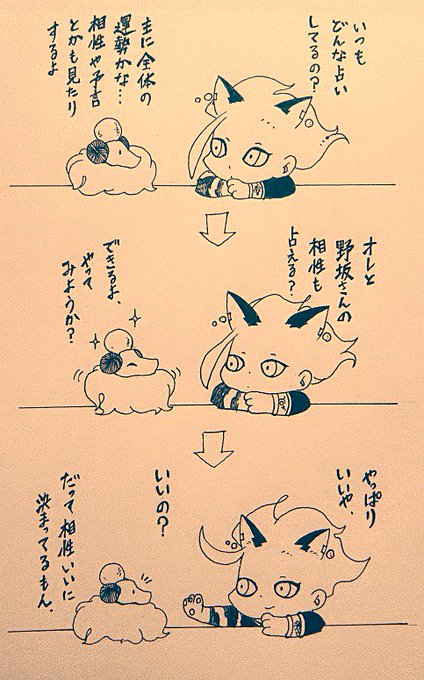 いつも
どんな占い
してるの？
主に全体の
運勢かな…
相性や予言
とかも見たり
するよ
オレと
野坂さんの
相性も
占える？
できるよ、
やって
みようか？
やっぱり
いいや、
いいの？
だって相性いいに
決まってるもん。